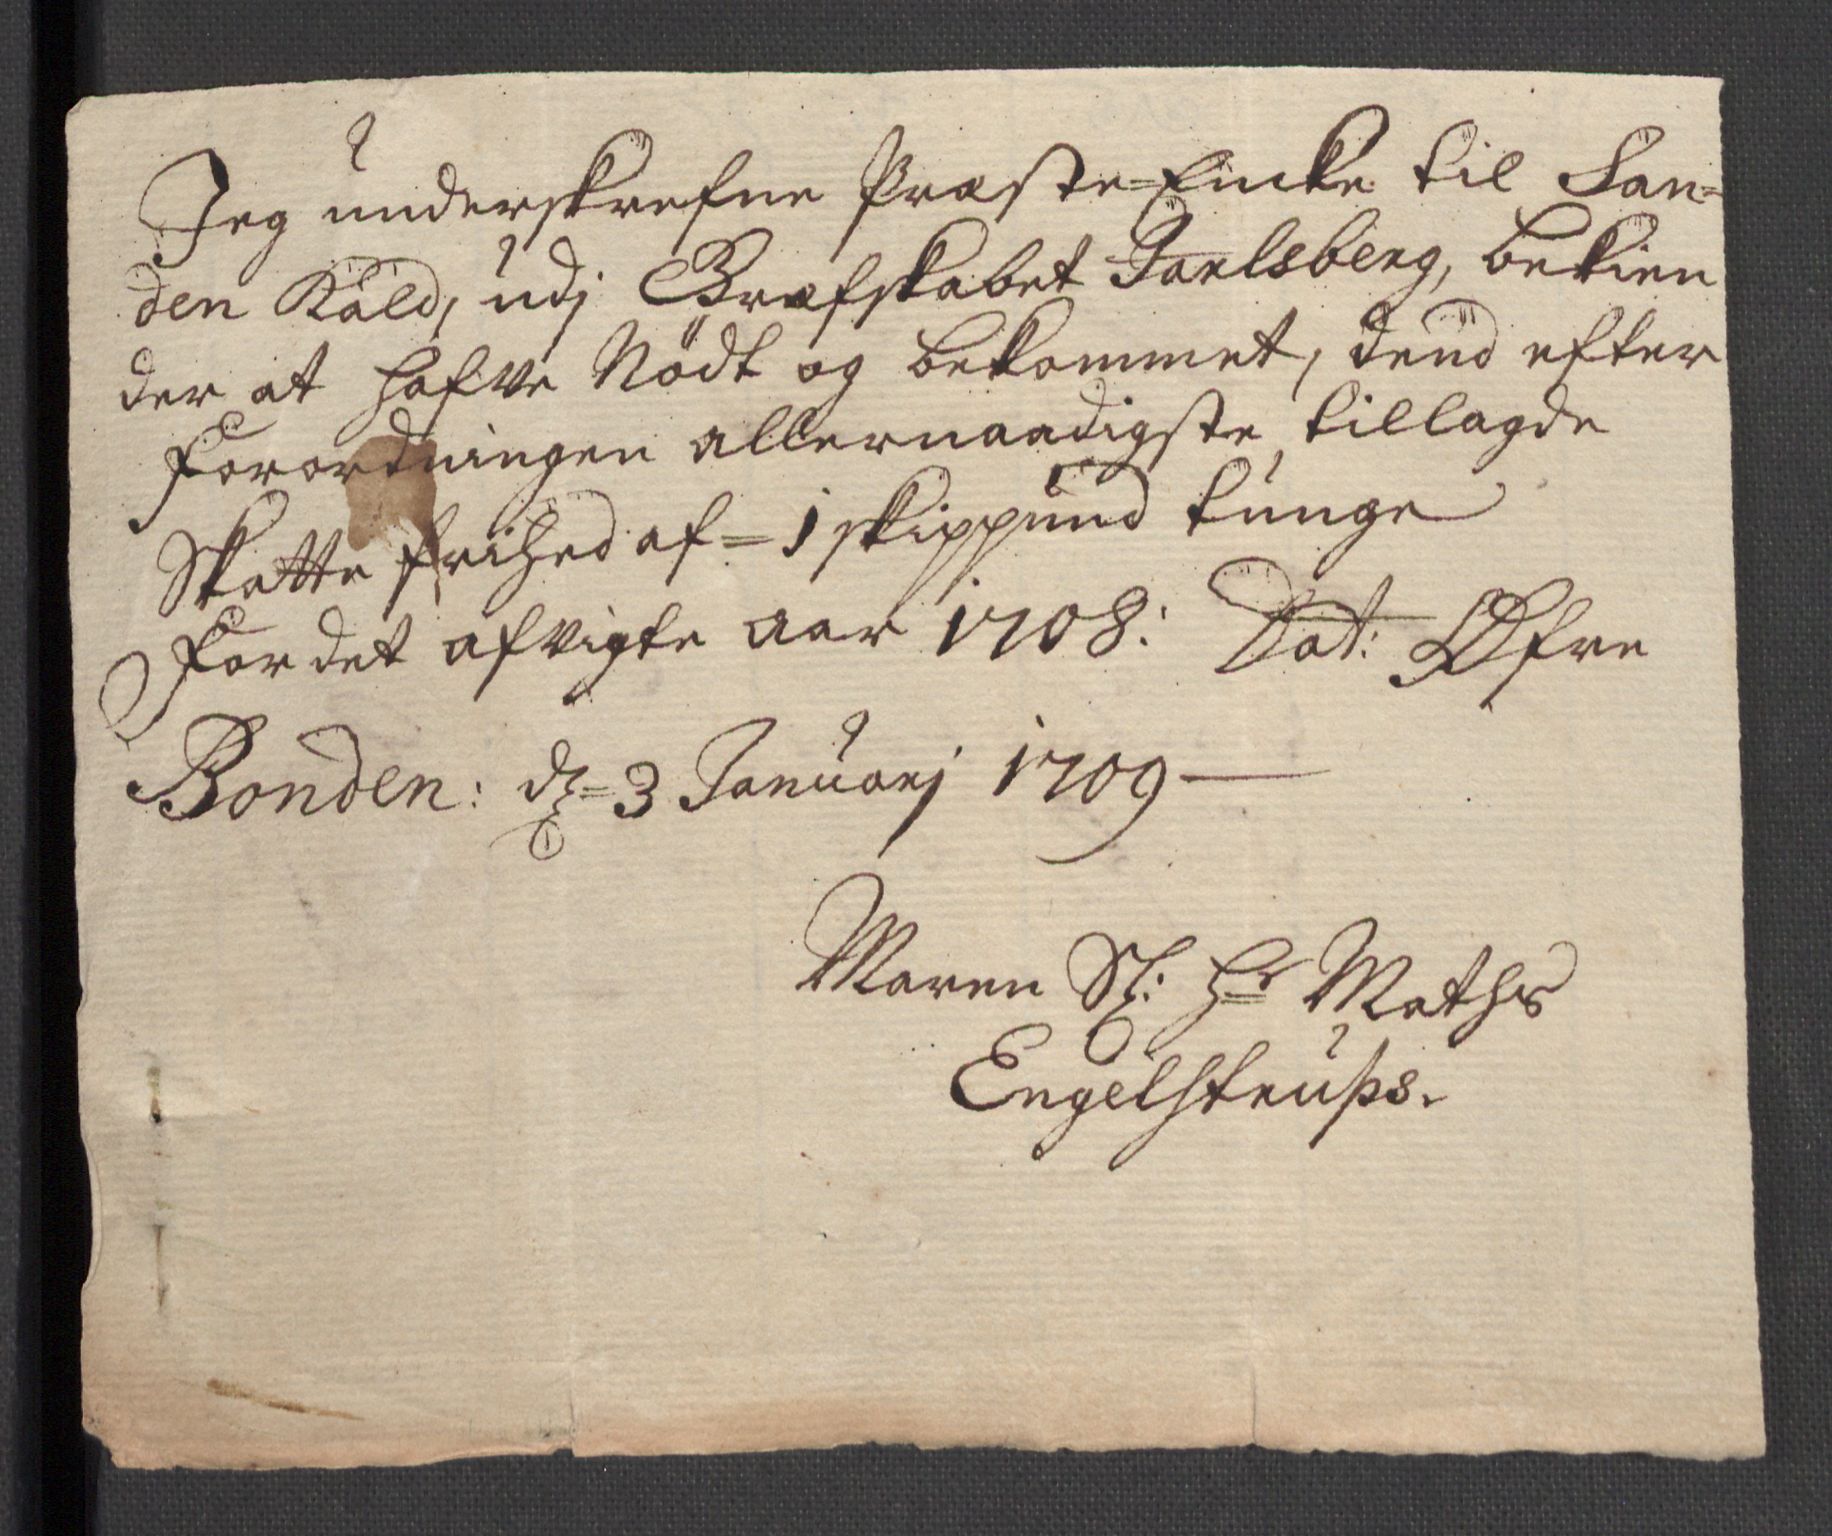 Jeg underskrefne Præste-Encke til San-
den Kald, udj Grefskabet Jarlsberg, bekien
der at hafve Nödt og bekommet, dend efter
Forordningen allernaadigste tillagde
Skatte frihed af = 1 skippund tunge
For det afvigte aar 1708: Dat: Øfre
Bonden: d = 3 Januarj 1709
Maren Sl: Hr Mathis
Engelstrups.